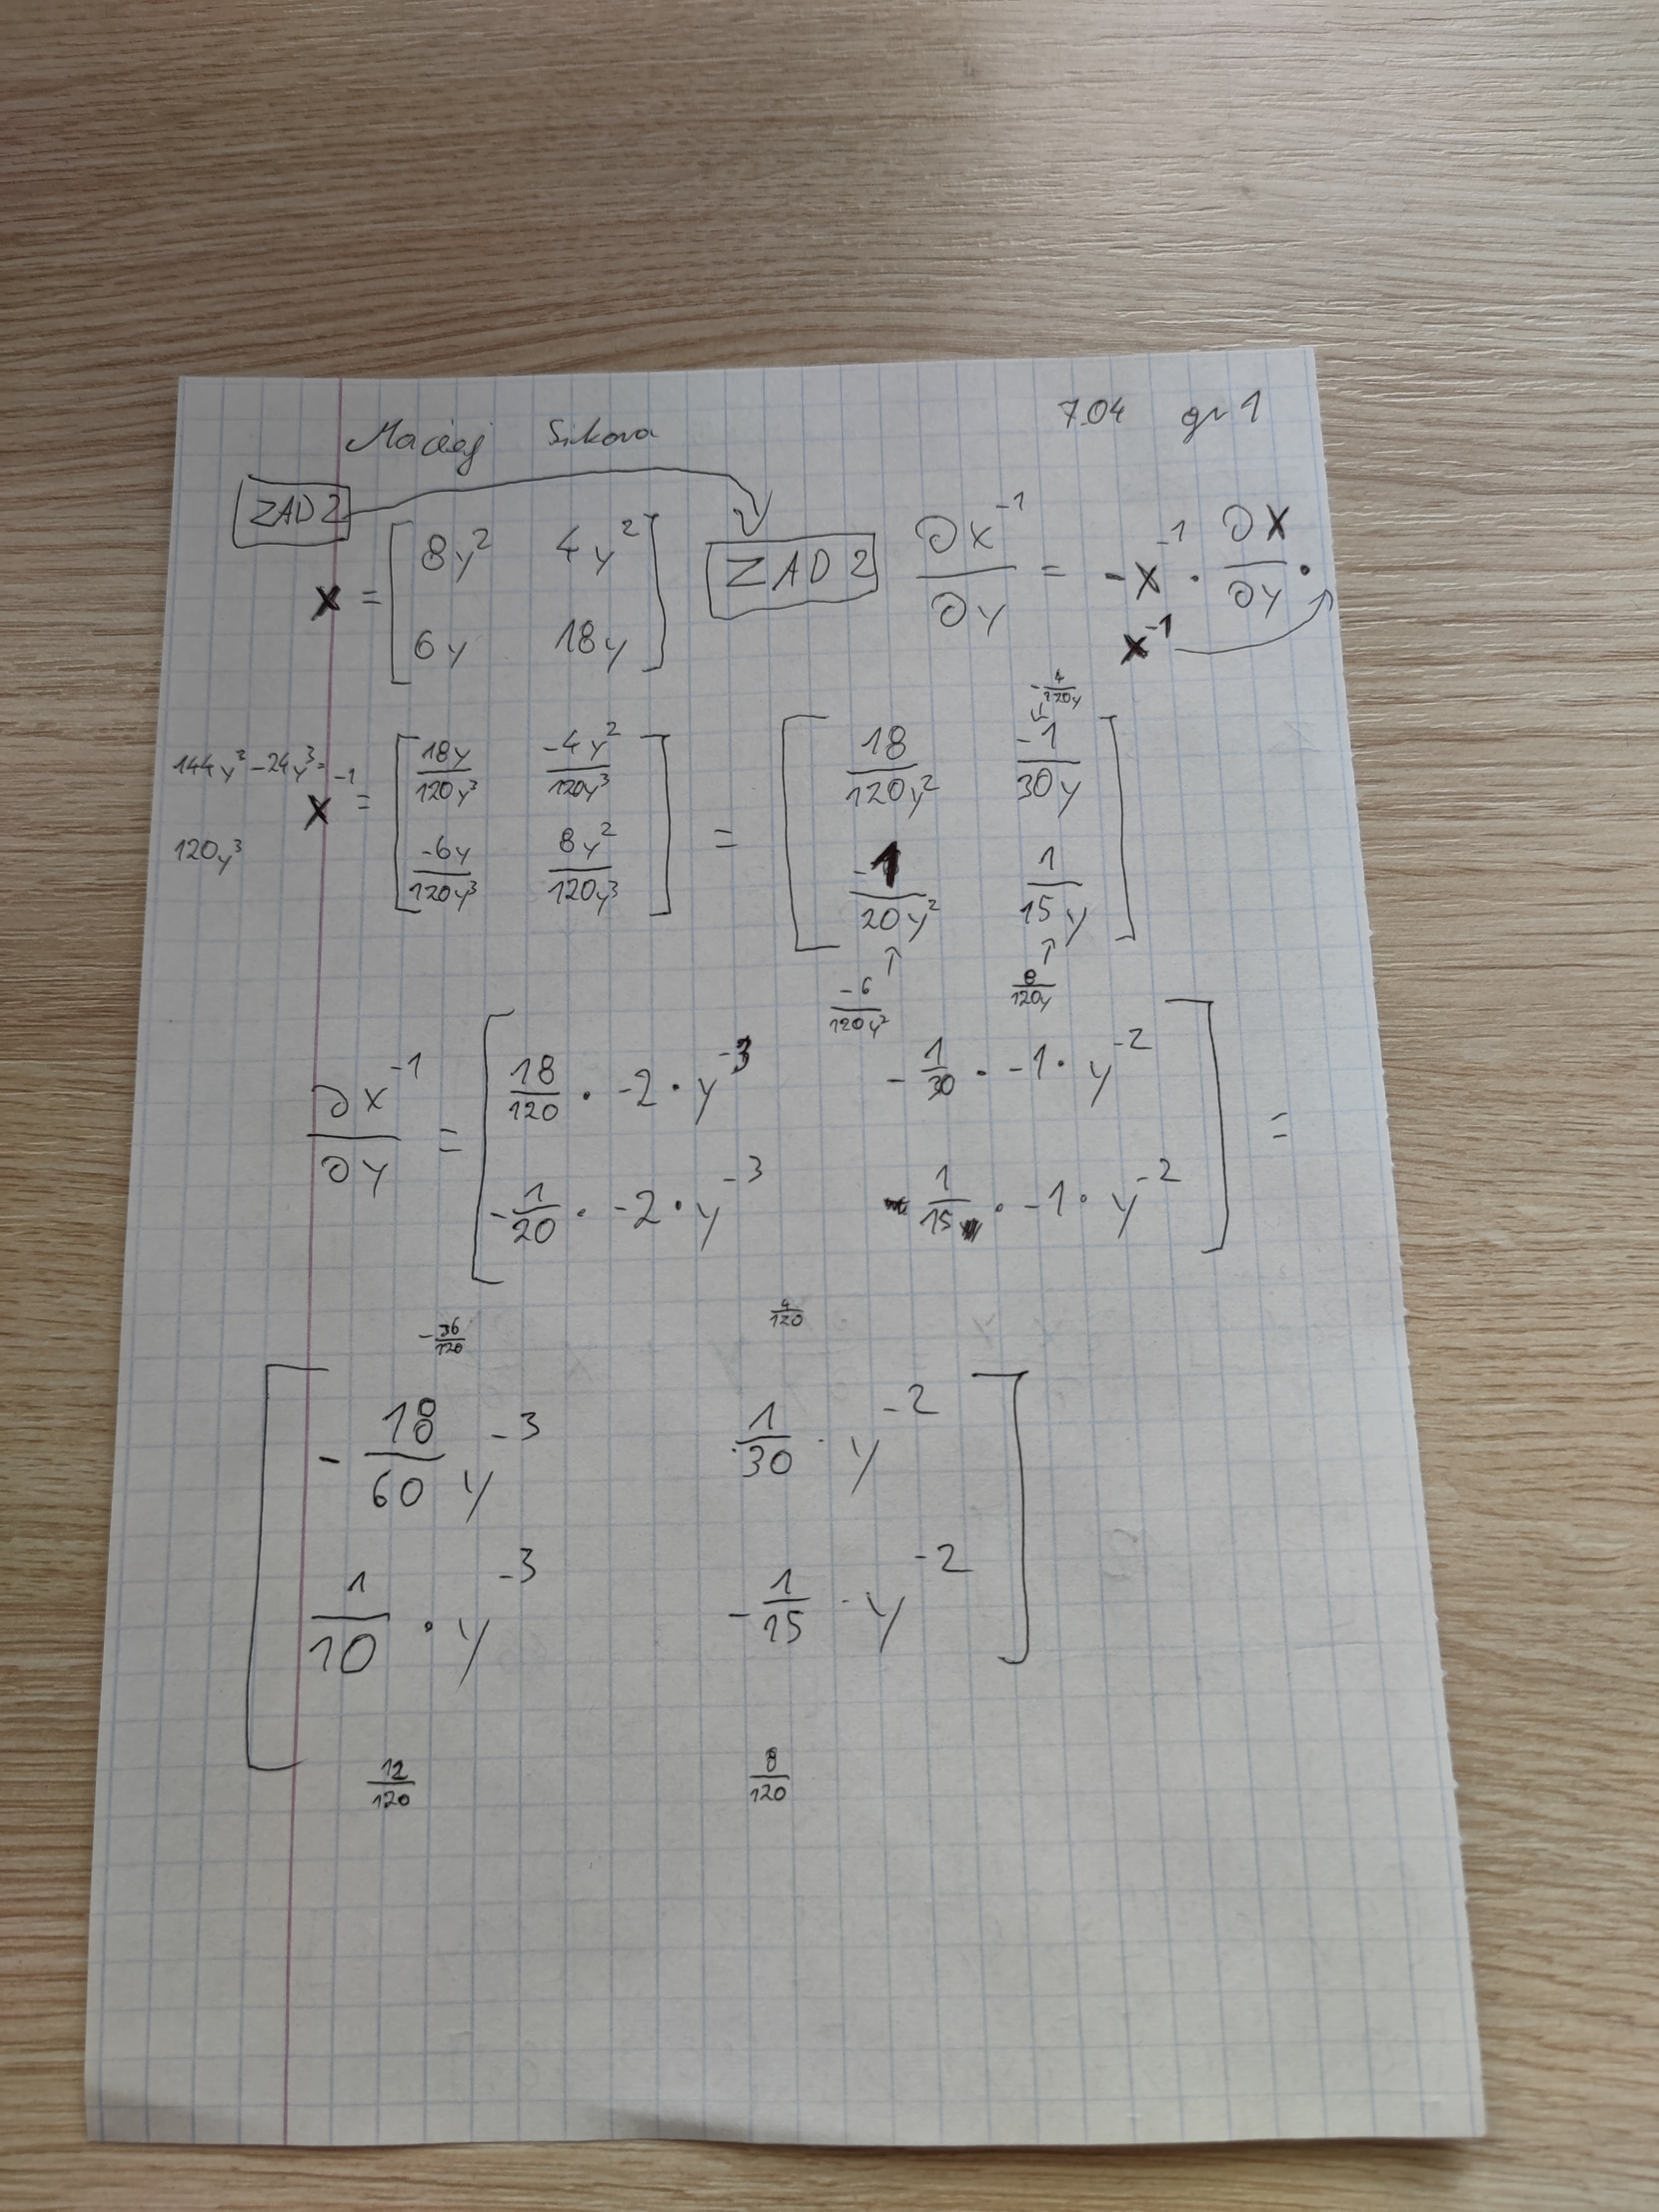 Maciej Sikora 7.04 gr 1
ZAD 2
X = [ 8y² 4y² ; 6y 18y ]
ZAD 2 ∂X⁻¹/∂y = -X⁻¹ · ∂X/∂y ·
X⁻¹
144y³ - 24y³ =
120y³
X⁻¹ = [ 18y/120y³ -4y²/120y³ ; -6y/120y³ 8y²/120y³ ] = [ 18/120y² -1/30y ; -1/20y² 1/15y ]
-4/120y
-6/120y² 8/120y
∂X⁻¹/∂y = [ 18/120 · -2 · y⁻³ -1/30 · -1 · y⁻² ; -1/20 · -2 · y⁻³ 1/15 · -1 · y⁻² ] =
-36/120 4/120
[ -18/60 y⁻³ 1/30 · y⁻² ; 1/10 · y⁻³ -1/15 · y⁻² ]
12/120 8/120